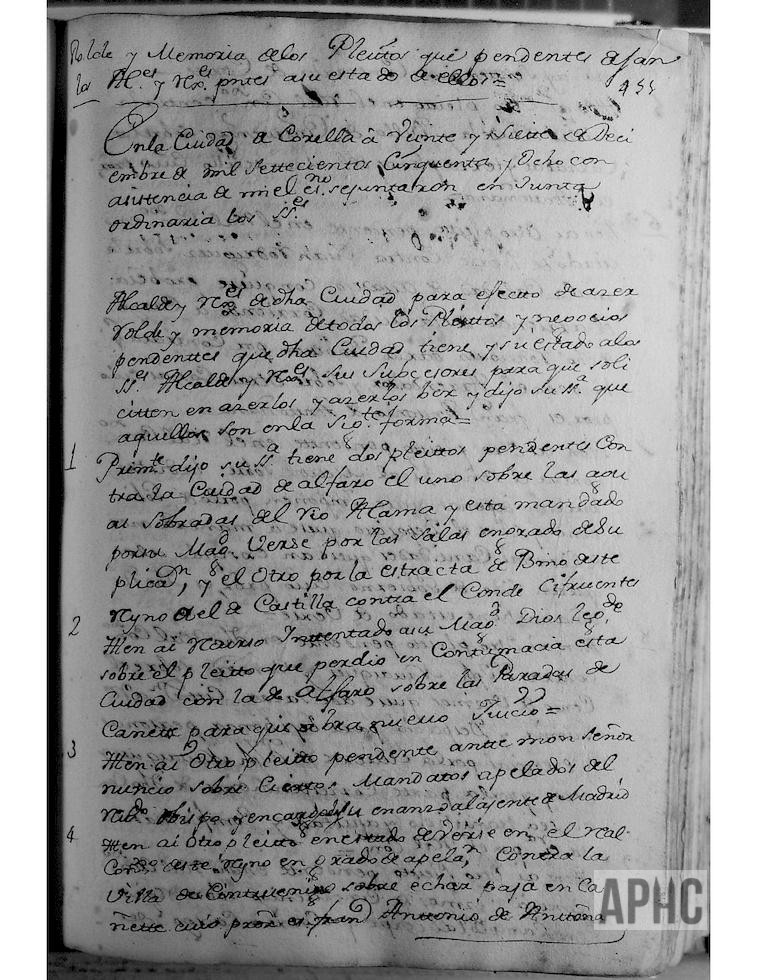 Rolde y Memoria de los Pleitos que pendentes dejan
los Al.es y R.es pntes a su estado de
455
En la Ciudad de Corella a Veinte y Siette de Deci
embre de mil Settecientos Cinquenta y Ocho con
asistencia de mi el es.no se juntaron en Junta
ordinaria los SS.es
Alcalde y R.es de dha Ciudad para efecto de azer
rolde y memoria de todos los Pleittos y negocios
pendentes que dha Ciudad tiene y su estado a los
SS.es Alcalde y R.es sus Subcesores para que soli
citten en azerlos y azerlos ber y dijo su SS.a que
aquellos son en la Sig.te forma=
1 Prim.te dijo su SS.a tiene dos pleittos pendentes Con
tra la Ciudad de alfaro el uno sobre las agu
as sobradas del rio Alama y esta mandado
por su Mag.d Verse por las Salas en grado de Su
plicac.n, y el Otro por la estracta de Bino deste
Reyno a el de Castilla contra el Conde Cifuentes
2 Ytten ai Recurso Intentado a su Mag.d Dios le g.de
sobre el pleitto que perdio en Contumacia esta
Ciudad con la de Alfaro sobre las Paradas de
Canete para que se abra nuevo Juicio=
3 Ytten ai Otro pleitto pendente antte monseñor
nuncio sobre Ciertos Mandatos apelados del
R.do Obispo y encargo su enanza al ajente de Madrid
4 Ytten ai Otro pleitto en estado de Verse en el Real
Con.º deste Reyno en grado de apela.n Contra la
Villa de Cintruenigo sobre echar paja en Ca
ñette cuio pror es fran.co Antonio de Anttoñana
APHC